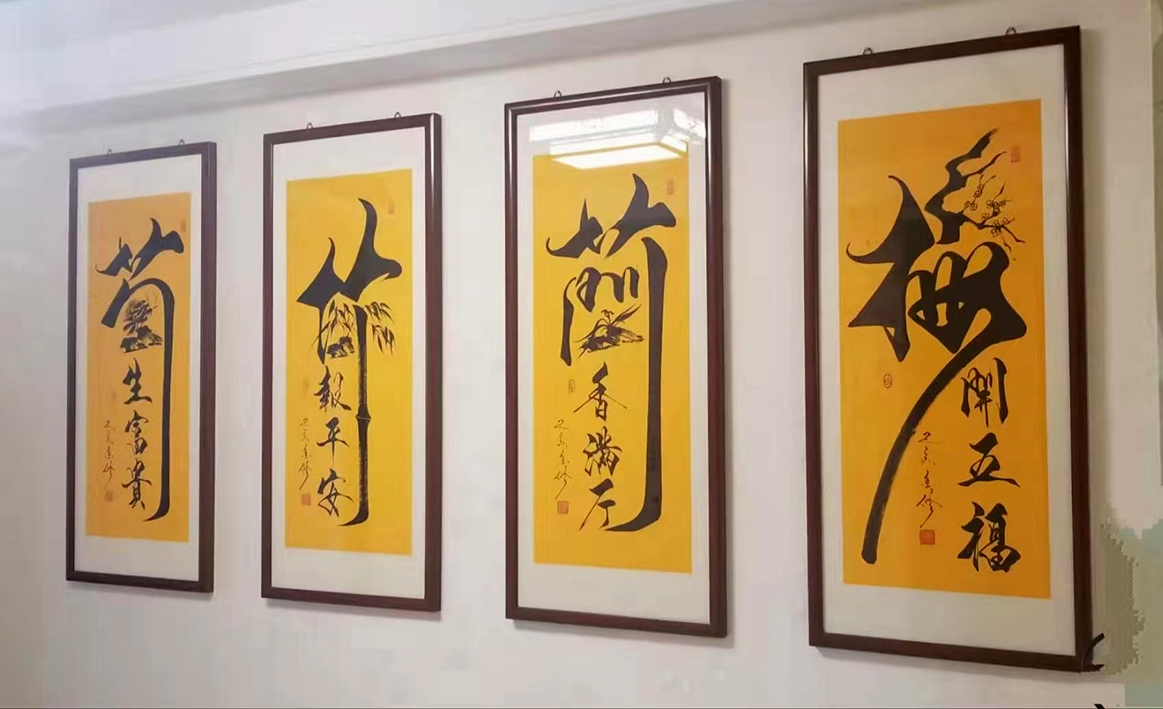 梅開五福
蘭香满厅
竹報平安
菊生富貴